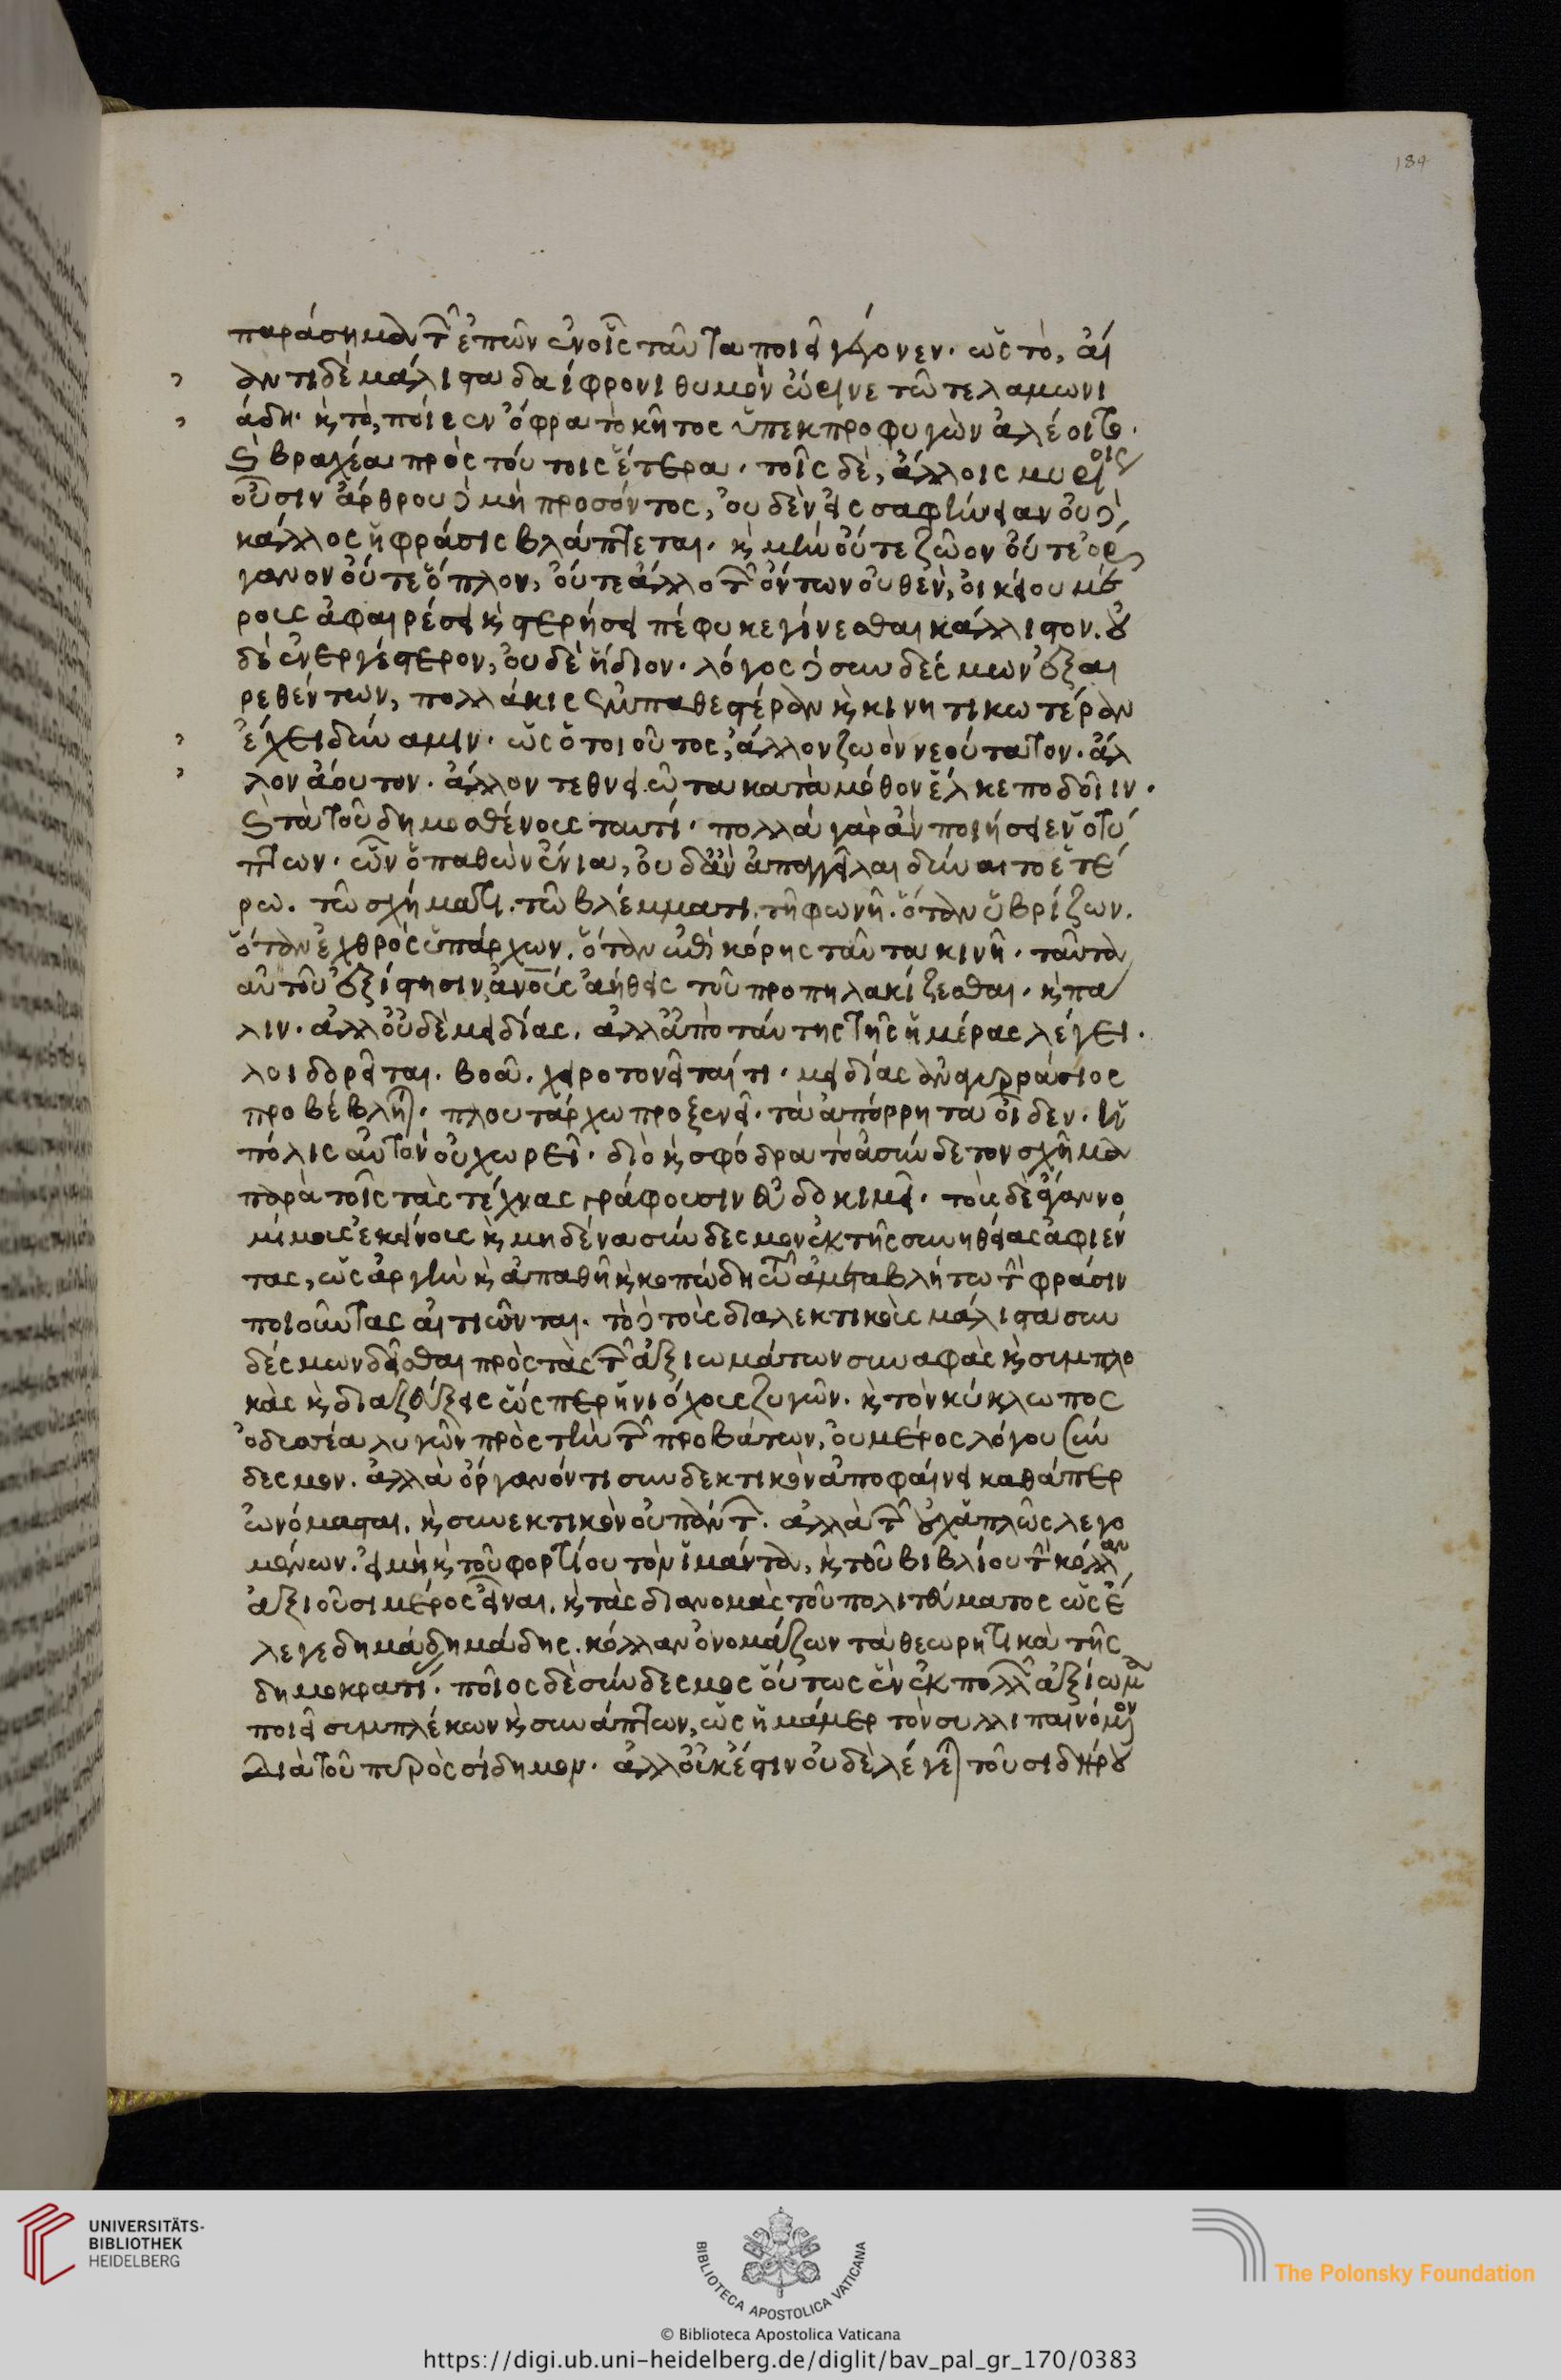 184
παράσημα τῶν ἐπῶν ἐν οἷς ταῦτα ποιεῖ γέγονεν. ὡς τὸ, αἴ
αντι δὲ μάλιστα δαίφρονι θυμὸν ὤρινε τῶ τελαμωνι
άδη. κ τὸ, ποίεεν ὄφρα τὸ κῆτος ὑπεκπροφυγὼν ἀλέοιτο.
καὶ βραχέα πρὸς τούτοις ἕτερα. τοῖς δὲ, ἄλλοις μυρίοις
οὖσιν ἄρθρου δὲ μὴ προσόντος, οὐδὲν εἰς σαφήνειαν οὐδὲ
κάλλος ἡ φράσις βλάπτεται. κ μὴν οὔτε ζῶον οὔτε ὄρ
γανον οὔτε ὅπλον, οὔτε ἄλλο τῶν ὄντων οὐθὲν, οἰκείου μέ
ρους ἀφαιρέσει κ στερήσει πέφυκε γίνεσθαι κάλλιστον. οὐ
δὲ ἐνεργέστερον, οὐδὲ ἥδιον. λόγος δὲ συνδέσμων ἐξαι
ρεθέντων, πολλάκις ἐμπαθεστέραν κ κινητικωτέραν
ἔχει δύναμιν. ὡς ὁ τοιοῦτος, ἄλλον ζωὸν νεούτατον. ἄλ
λον ἄουτον. ἄλλον τεθνειῶτα κατὰ μόθον ἕλκε ποδοῖιν.
καὶ τὰ τοῦ δημοσθένους ταυτί. πολλὰ γὰρ ἂν ποιήσειεν ὁ τύ
πτων. ὧν ὁ παθὼν ἔνια, οὐδ' ἂν ἀπαγγεῖλαι δύναιτο ἑτέ
ρω. τῶ σχήματι. τῶ βλέμματι. τῆ φωνῆ. ὅταν ὑβρίζων.
ὅταν ἐχθρὸς ὑπάρχων. ὅταν ἐπὶ κόρης ταῦτα κινῆ. ταῦτα
αὐτοῦ ἐξίστησιν ἀνοὺς ἀήθεις τοῦ προπηλακίζεσθαι. κ πά
λιν. ἀλλ' οὐδὲ μειδίας. ἀλλ' ἀπὸ ταύτης τῆς ἡμέρας λέγει.
λοιδορεῖται. βοᾶ. χειροτονεῖταί τι. μειδίας ἀναγυρράσιος
προβέβληται. πλουτάρχω προξενεῖ. τὰ ἀπόρρητα οἶδεν. ἡ
πόλις αὐτὸν οὐ χωρεῖ. διὸ κ σφόδρα τὸ ἀσύνδετον σχῆμα
παρὰ τοῖς τὰς τέχνας γράφουσιν εὐδοκιμεῖ. τοὺς δὲ ἄγαν νο
μίμους ἐκείνους κ μηδένα σύνδεσμον ἐκ τῆς συνηθείας ἀφιέν
τας, ὡς ἀργὴν κ ἀπαθῆ κ κοπώδη τῶ ἀμεταβλήτω τὴν φράσιν
ποιοῦντας αἰτιῶνται. τὸ δὲ τοὺς διαλεκτικοὺς μάλιστα συν
δέσμων δεῖσθαι πρὸς τὰς τῶν ἀξιωμάτων συναφὰς κ συμπλο
κὰς κ διαζεύξεις ὥσπερ ἡνιόχους ζυγῶν. κ τὸν κύκλωπος
ὀδυσσέα λυγῶν πρὸς τὴν τῶν προβάτων, οὐ μέρος λόγου σύν
δεσμον. ἀλλὰ ὄργανόν τι συνδεκτικὸν ἀποφαίνει καθάπερ
ὠνόμασται. κ συνεκτικὸν οὐ πάντων. ἀλλὰ τῶν οὐχ ἁπλῶς λεγο
μένων. εἰ μὴ κ τοῦ φορτίου τὸν ἱμάντα, κ τοῦ βιβλίου τὴν κόλλαν
ἀξιοῦσι μέρος εἶναι. κ τὰς διανομὰς τοῦ πολιτεύματος ὡς ἔ
λεγε δημάδημάδης. κόλλαν ὀνομάζων τὰ θεωρητικὰ τῆς
δημοκρατίας. ποῖος δὲ σύνδεσμος οὕτως ἓν ἐκ πολλῶν ἀξίωμα
ποιεῖ συμπλέκων κ συνάπτων, ὡς ἡ μάμερ τὸν συλλιπαινόμενον
διὰ τοῦ πυρὸς σίδημον. ἀλλ' οὐκ ἔστιν οὐδὲ λέγεται τοῦ σιδήρου
UNIVERSITÄTS-
BIBLIOTHEK
HEIDELBERG
BIBLIOTECA APOSTOLICA VATICANA
The Polonsky Foundation
© Biblioteca Apostolica Vaticana
https://digi.ub.uni-heidelberg.de/diglit/bav_pal_gr_170/0383